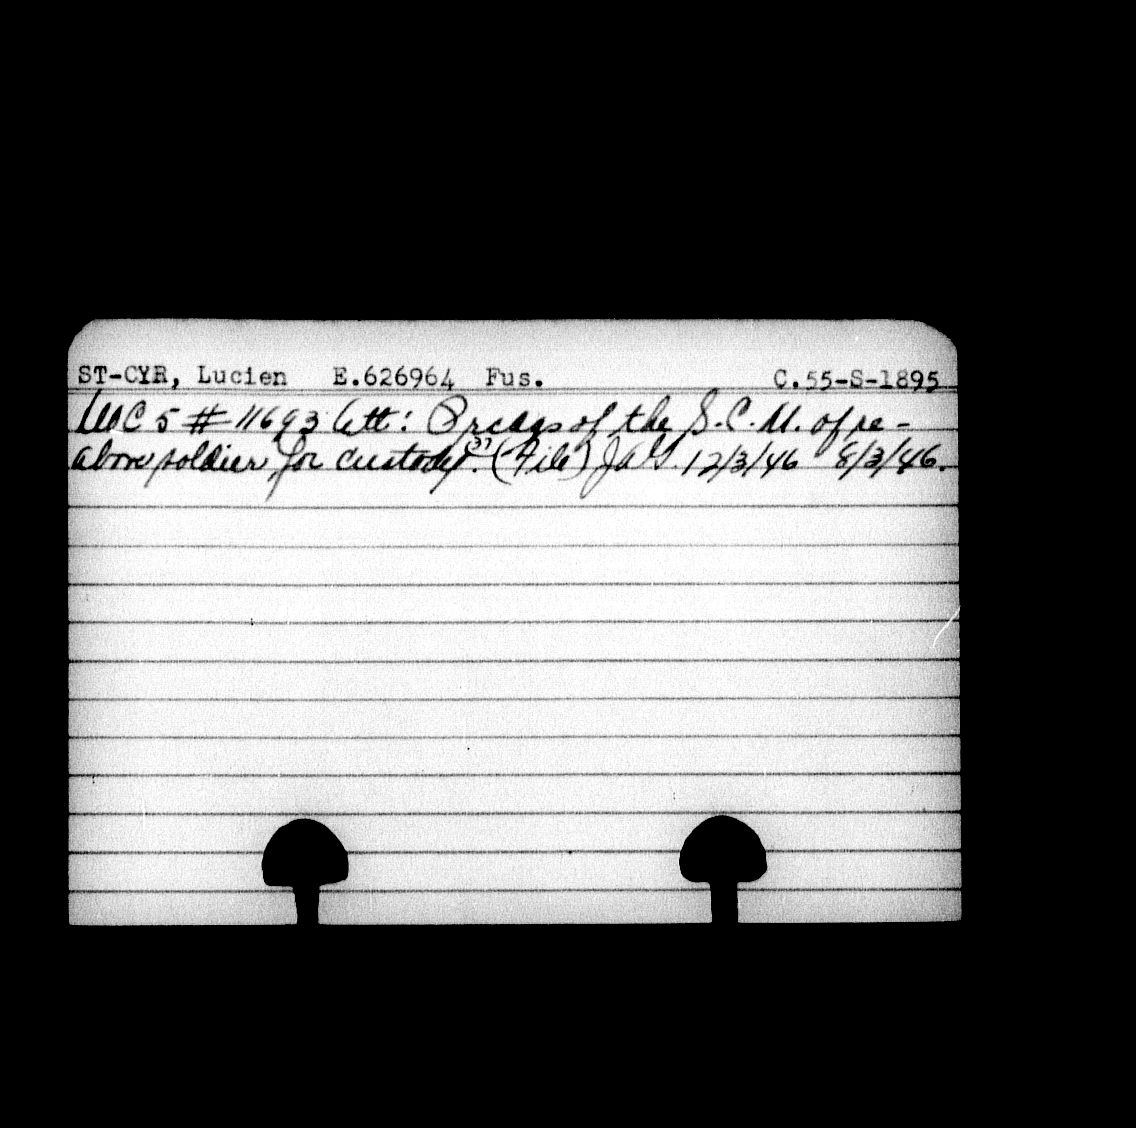 ST-CYR, Lucien E.626964 Fus. C.55-S-1895
MC 5 # 11693 Att: Prcdgs of the S.C.M. of re-
above soldier for custody. (37) (File) JAG. 12/3/46 8/3/46.